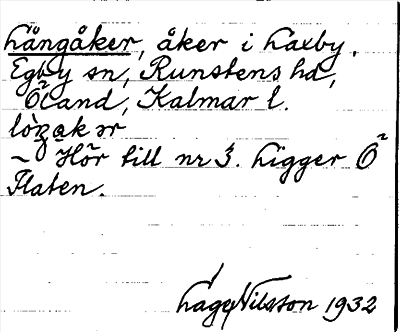 Långåker, åker i Laxby.
Egby sn, Runstens hd,
Öland, Kalmar l.
~ Hör till nr 3. Ligger Ö
Flaten.
Lage Nilsson 1932